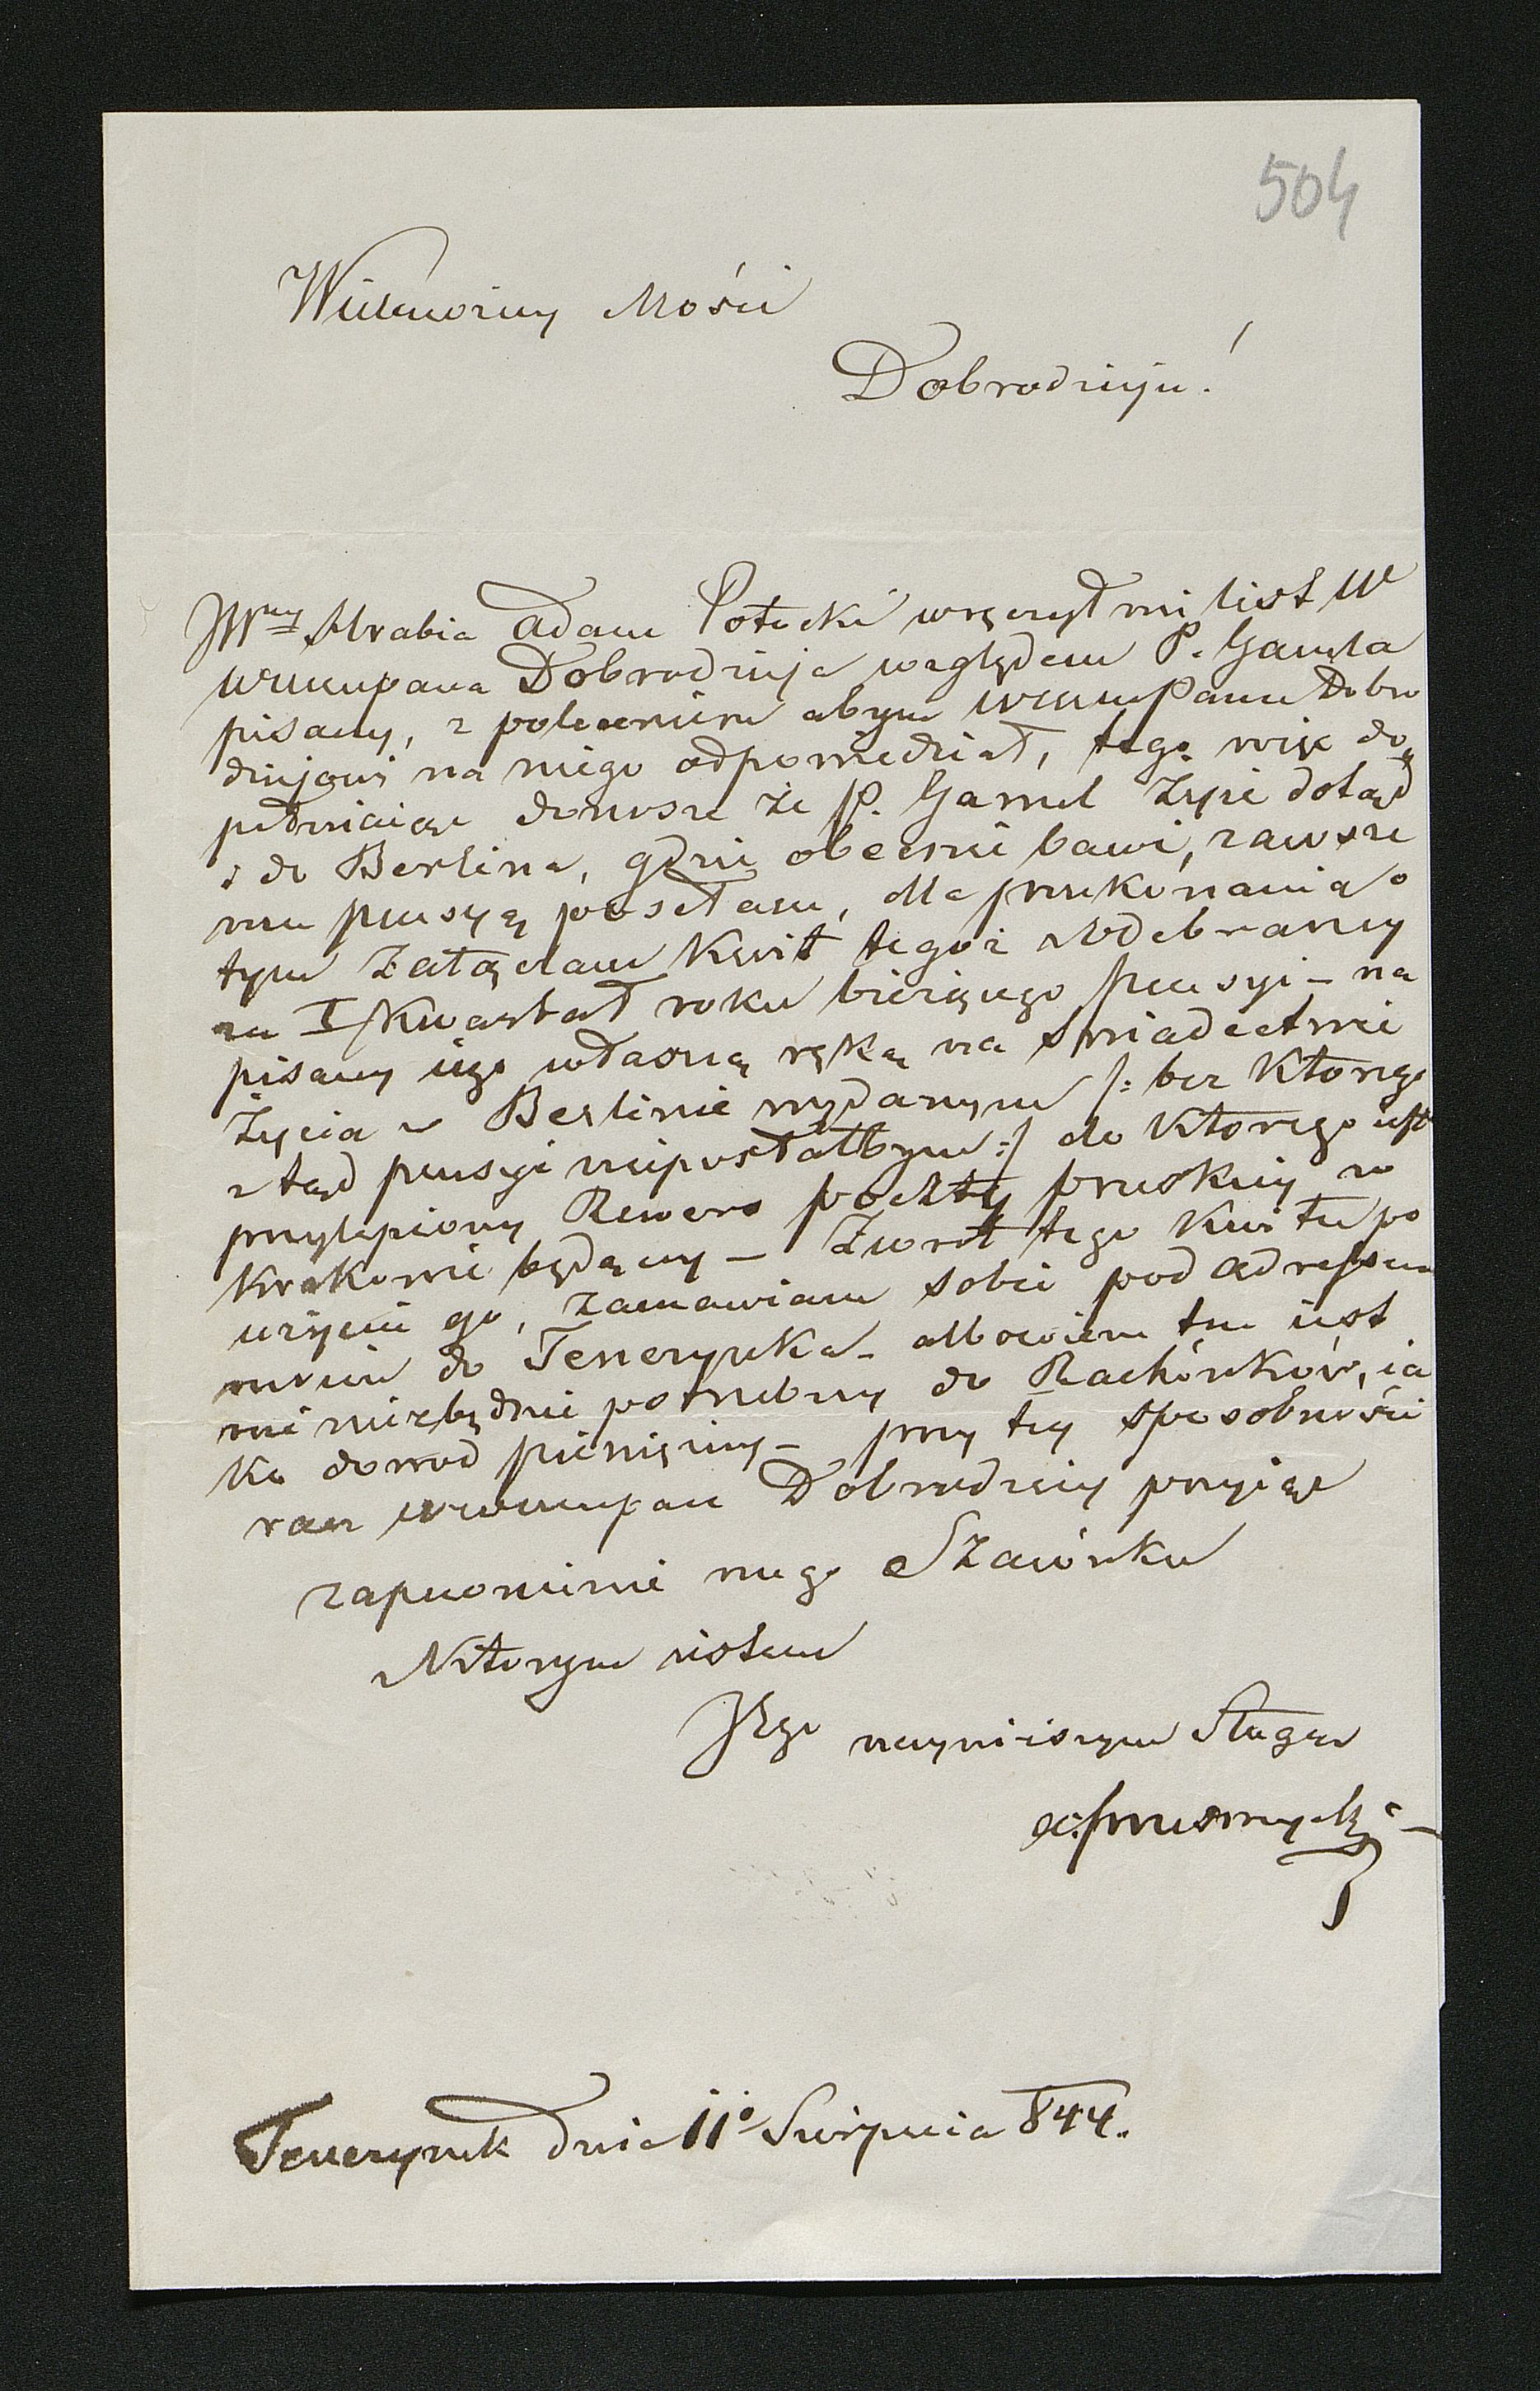 504
Wielmożny Mości
Dobrodzieju!
JW<sup>ny</sup> Hrabia Adam Potocki wręczył mi list W
WmmPana Dobrodzieja względem P. Gamla
pisany, z poleceniem abym WmmPanu Dobro
dziejowi na niego odpowiedział, tego więc do
pełniaiąc donoszę że P. Gamel żyie dotąd
i do Berlina, gdzie obecnie bawi, zawsze
mu pensyą posełam, dla przekonania o
tym załączam kwit tegoż odebraney
za I Kwartał roku bieżącego pensyi – na
pisany iego własną ręką na świadectwie
życia w Berlinie wydanym /: bez którego
ztąd pensyi nieposłałbym :/ do którego iest
przylepiony Rewers poczty pruskiey w
Krakowie będącey – Zwrot tego kwitu po
użyciu go, zamawiam sobie pod adressem
moim do Tenczynka – albowiem ten iest
mi niezbędnie potrzebny do Rachunków, ia
ko dowod pieniężny – przy tey sposobności
racz WmmPan Dobrodziey przyiąć
zapewnienie mego Szacunku
z Którym iestem
Jego nayniższym Sługą
Tenczynek dnia 11° Sierpnia 844.